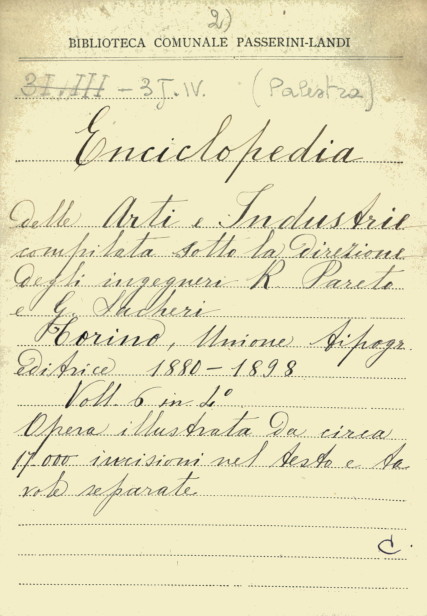 2)
BIBLIOTECA COMUNALE PASSERINI-LANDI
3I.III - 3J.IV. (Palestra)
Enciclopedia
delle Arti e Industrie
compilata sotto la direzione
degli ingegneri R Pareto
e G. Sacheri
Torino, Unione tipogr.
editrice 1880-1898
Voll. 6 in 4°
Opera illustrata da circa
17.000 incisioni nel testo e ta
vole separate
C.